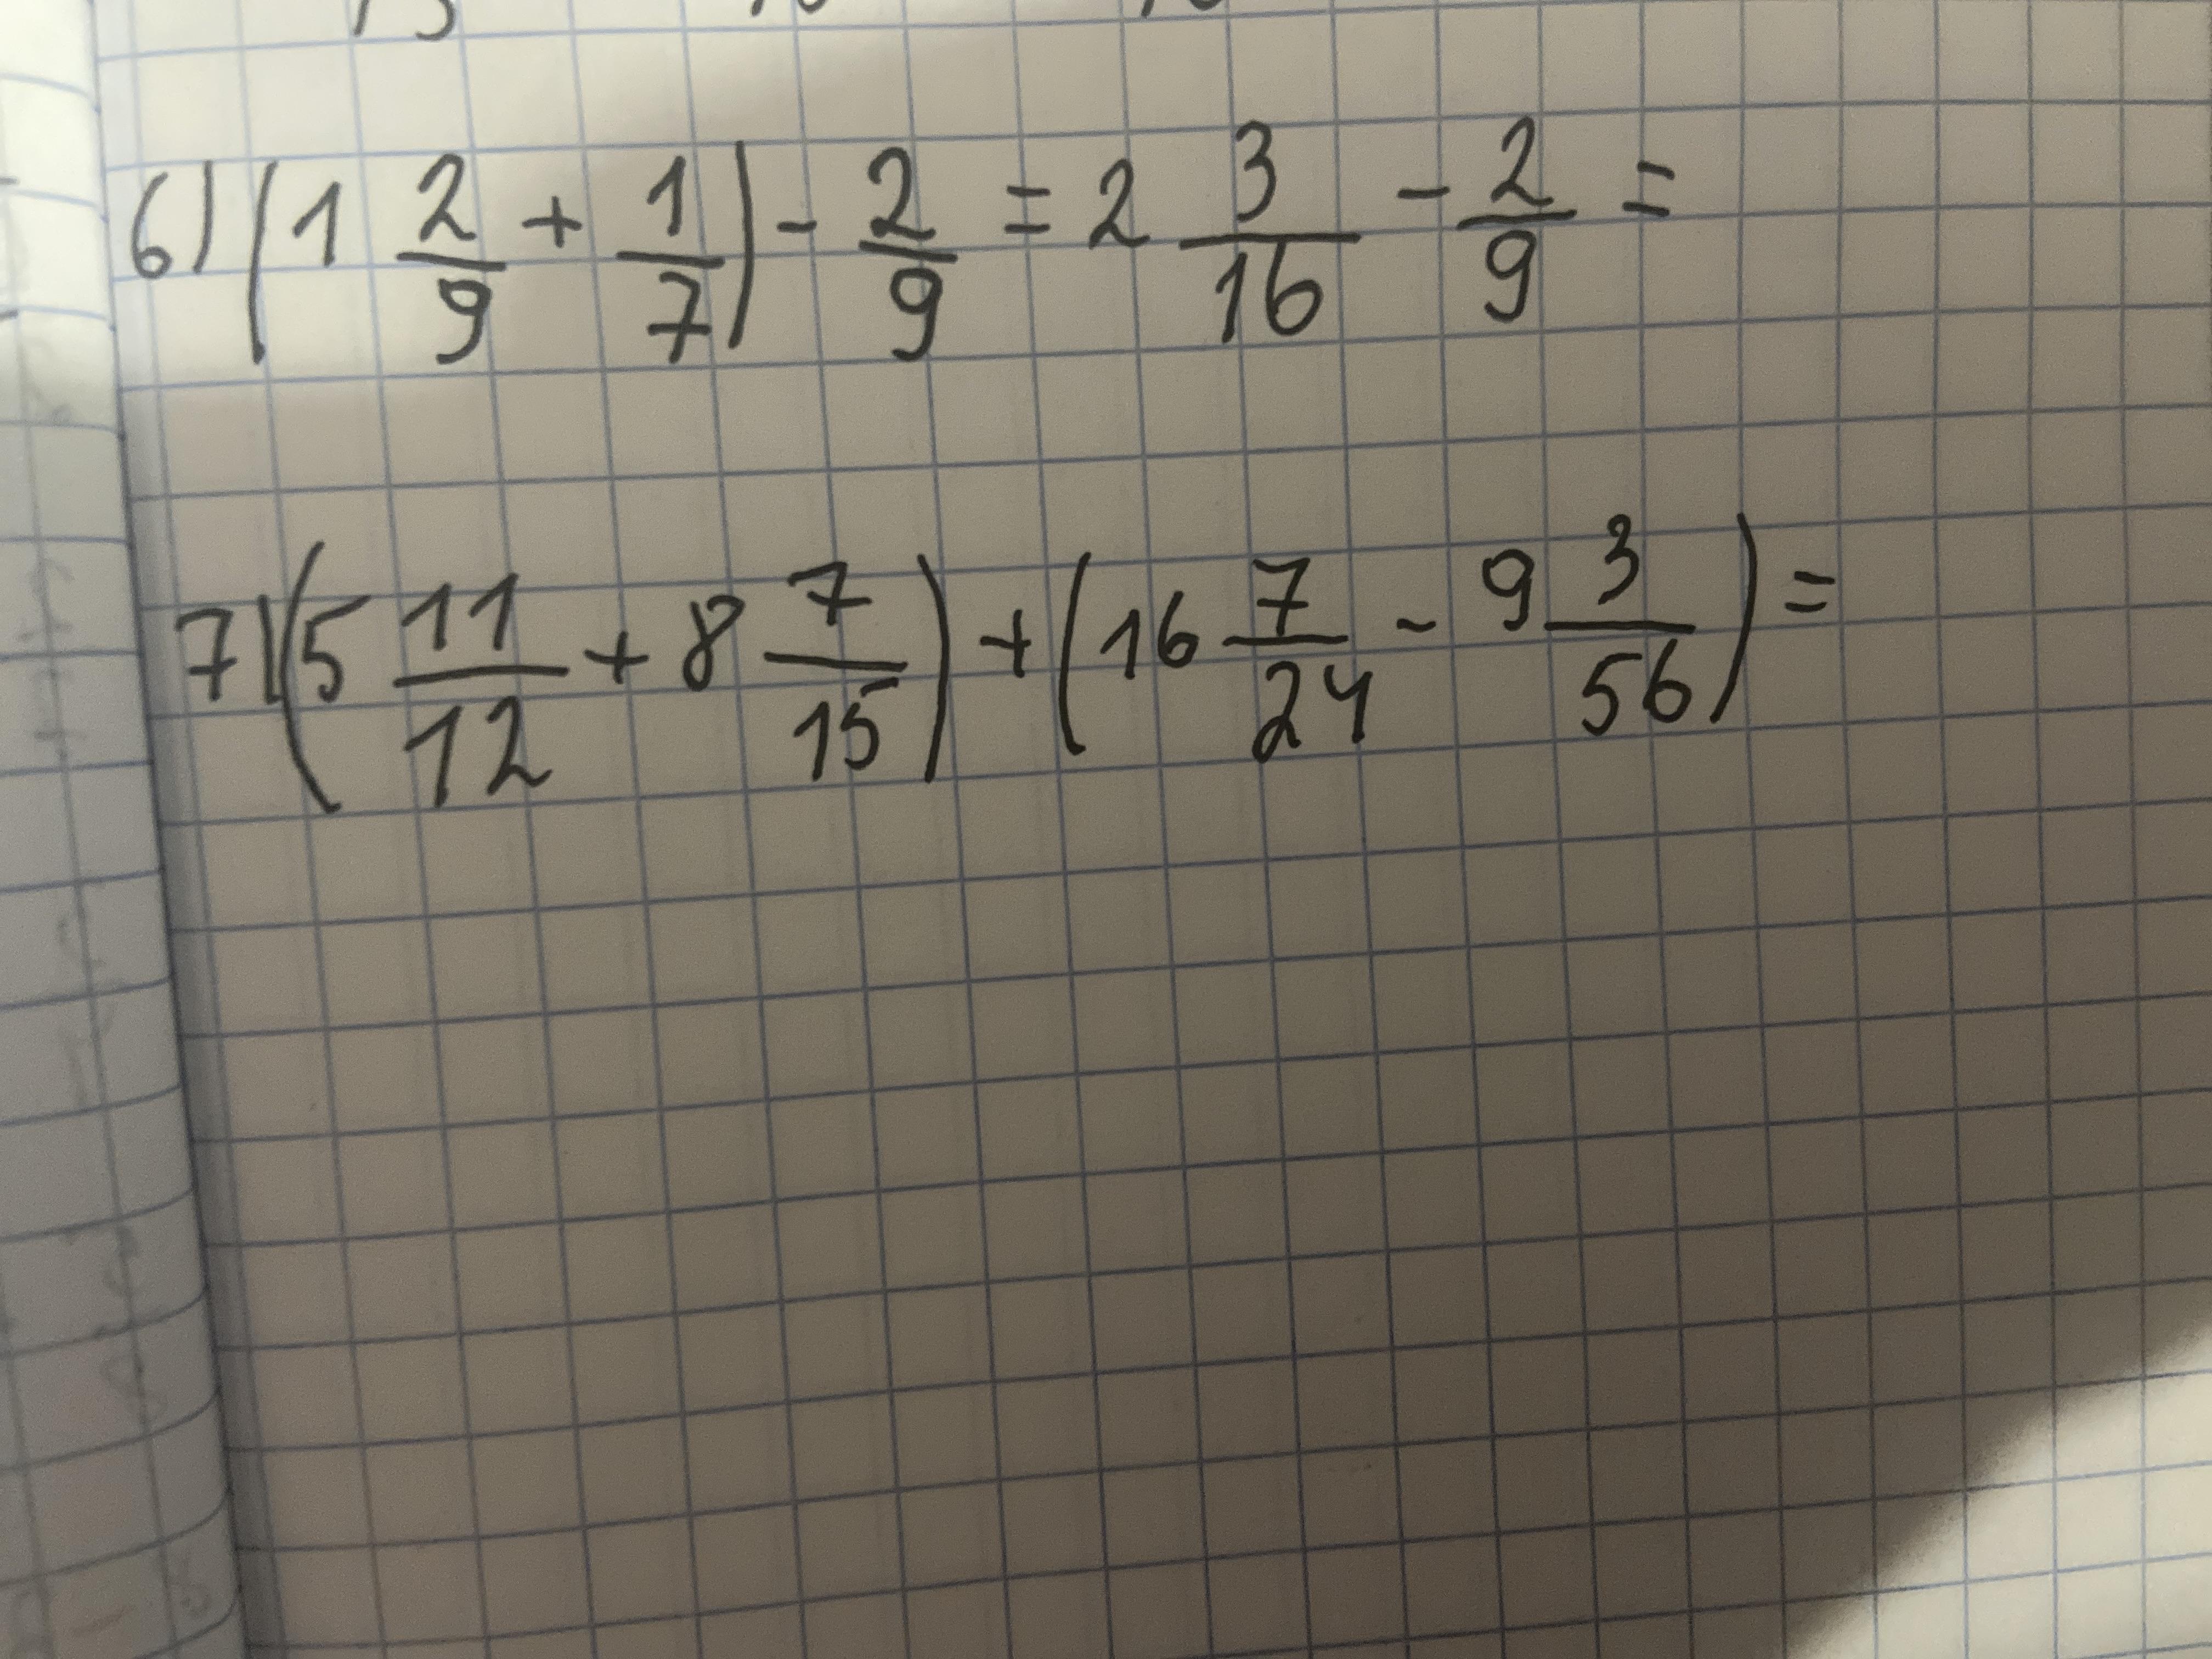 6) (1 2/9 + 1/7) - 2/9 = 2 3/16 - 2/9 =
7) (5 11/12 + 8 7/15) + (16 7/24 - 9 3/56) =